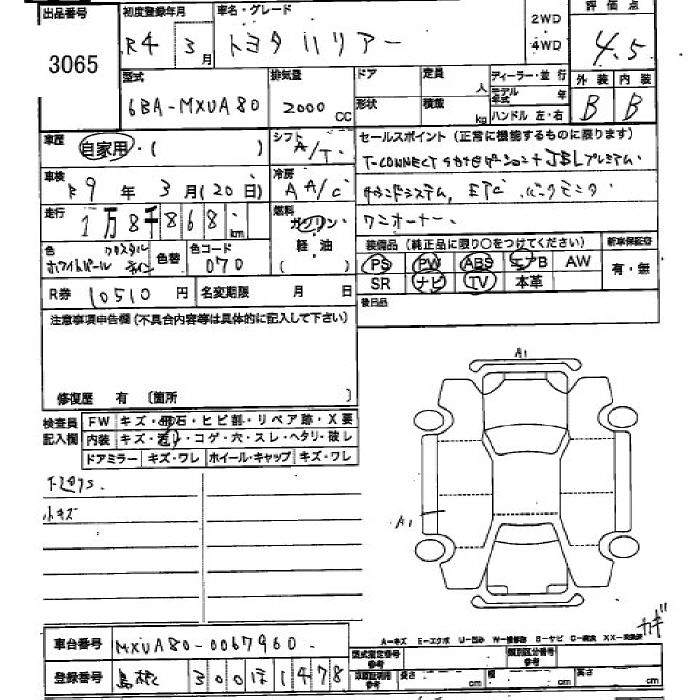 出品番号
3065
初度登録年月
R4 3月
車名・グレード
トヨタ ハリアー
2WD
4WD
評価点
4.5
型式
6BA-MXUA80
排気量
2000 CC
ドア
形状
定員 人
積載 kg
ディーラー・並行
モデル年式 年
ハンドル 左・右
外装 内装
B B
車歴
自家用・( )
シフト
A/T
車検
R9年3月(20日)
冷房
AA/C
走行
1万8千868km
燃料
ガソリン・
軽油
( )
色
ホワイトパール クリスタル シャイン
色替
色コード
070
R券 10510円
名変期限 月 日
セールスポイント(正常に機能するものに限ります)
T-CONNECTナビゲーション+JBLプレミアム
サウンドシステム, ETC バックモニタ
ワンオーナー.
装備品(純正品に限り○をつけてください)
PS PW ABS エアB AW
SR ナビ TV 本革
新車保証書
有・無
後日品
注意事項申告欄(不具合内容等は具体的に記入して下さい)
修復歴 有(箇所 )
検査員
記入欄
FW キズ・飛石・ヒビ割・リペア跡・X要
内装 キズ・若干・コゲ・穴・スレ・ヘタリ・破レ
ドアミラー キズ・ワレ ホイール・キャップ キズ・ワレ
小キズ
A1
A1
A-キズ E-エクボ U-凹み W-補修跡 B-サビ C-腐食 XX-交換済
カギ
車台番号 MXUA80-0067960
登録番号 島根 300 ほ 1478
型式指定番号 参考
類別区分番号 参考
車庫証明用 参考
長さ cm
幅 cm
高さ cm